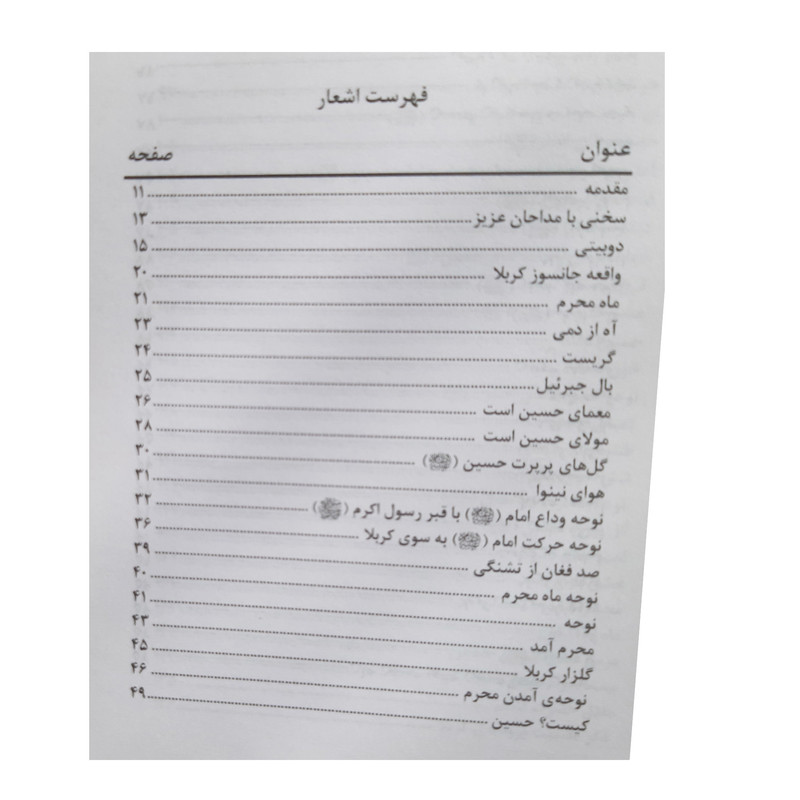 فهرست اشعار
عنوان صفحه
مقدمه ........ ۱۱
سخنی با مداحان عزیز ........ ۱۳
دوبیتی ........ ۱۵
واقعه جانسوز کربلا ........ ۲۰
ماه محرم ........ ۲۱
آه از دمی ........ ۲۳
گریست ........ ۲۴
بال جبرئیل ........ ۲۵
معمای حسین است ........ ۲۶
مولای حسین است ........ ۲۸
گل‌های پرپرت حسین () ........ ۳۰
هوای نینوا ........ ۳۱
نوحه وداع امام () با قبر رسول اکرم () ........ ۳۲
نوحه حرکت امام () به سوی کربلا ........ ۳۶
صد فغان از تشنگی ........ ۳۹
نوحه ماه محرم ........ ۴۰
نوحه ........ ۴۱
محرم آمد ........ ۴۳
گلزار کربلا ........ ۴۵
نوحه‌ی آمدن محرم ........ ۴۶
کیست؟ حسین ........ ۴۹